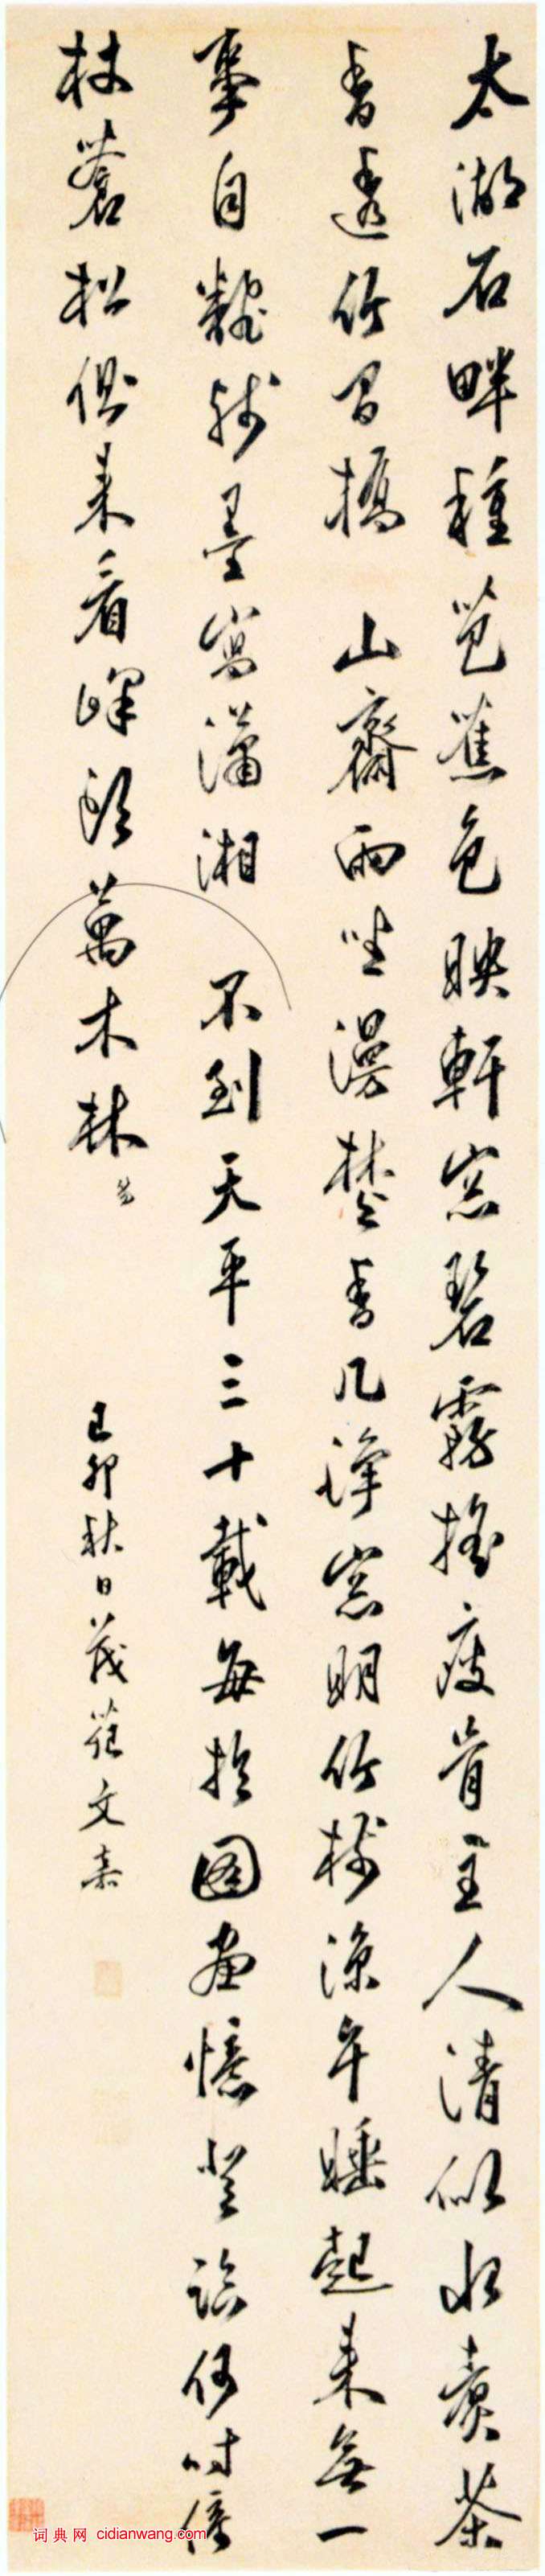 太湖石畔種芭蕉色映軒窓碧霧搖瘦骨主人清似水煮茶
香透竹間橋 山齋雨坐漫焚香几淨窓明竹樹涼午睡起來無一
事自殘墨寫瀟湘 不到天平三十載每於圖畫憶登臨何時倚
杖蒼松側來看峰頭萬木林
己卯秋日茂苑文嘉
词典网 cidianwang.com